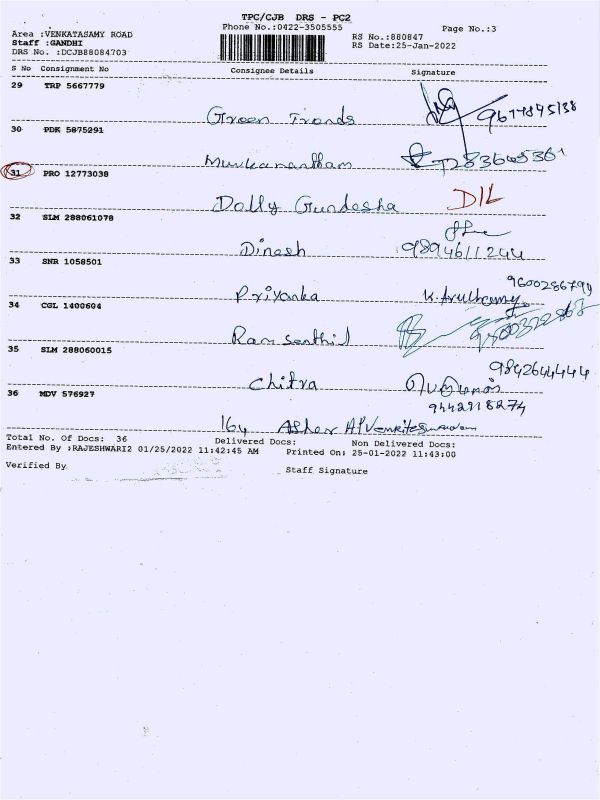 TPC/CJB DRS - PC2
Phone No.:0422-3505555
Page No.:3
Area :VENKATASAMY ROAD
Staff :GANDHI
DRS No. :DCJB88084703
RS No.:880847
RS Date:25-Jan-2022
S No Consignment No Consignee Details Signature
29 TRP 5667779
Green Trends 9677845138
30 PDK 5875291
31 PRO 12773038
Dolly Gundesha D/L
32 SLM 288061078
Dinesh 9894611244
33 SNR 1058501
9600286799
Priyanka
34 CGL 1400604
Ram Senthil
35 SLM 288060015
9842644444
Chitra
36 MDV 576927
9442918274
164
Total No. Of Docs: 36 Delivered Docs: Non Delivered Docs:
Entered By :RAJESHWARI2 01/25/2022 11:42:45 AM Printed On: 25-01-2022 11:43:00
Verified By Staff Signature